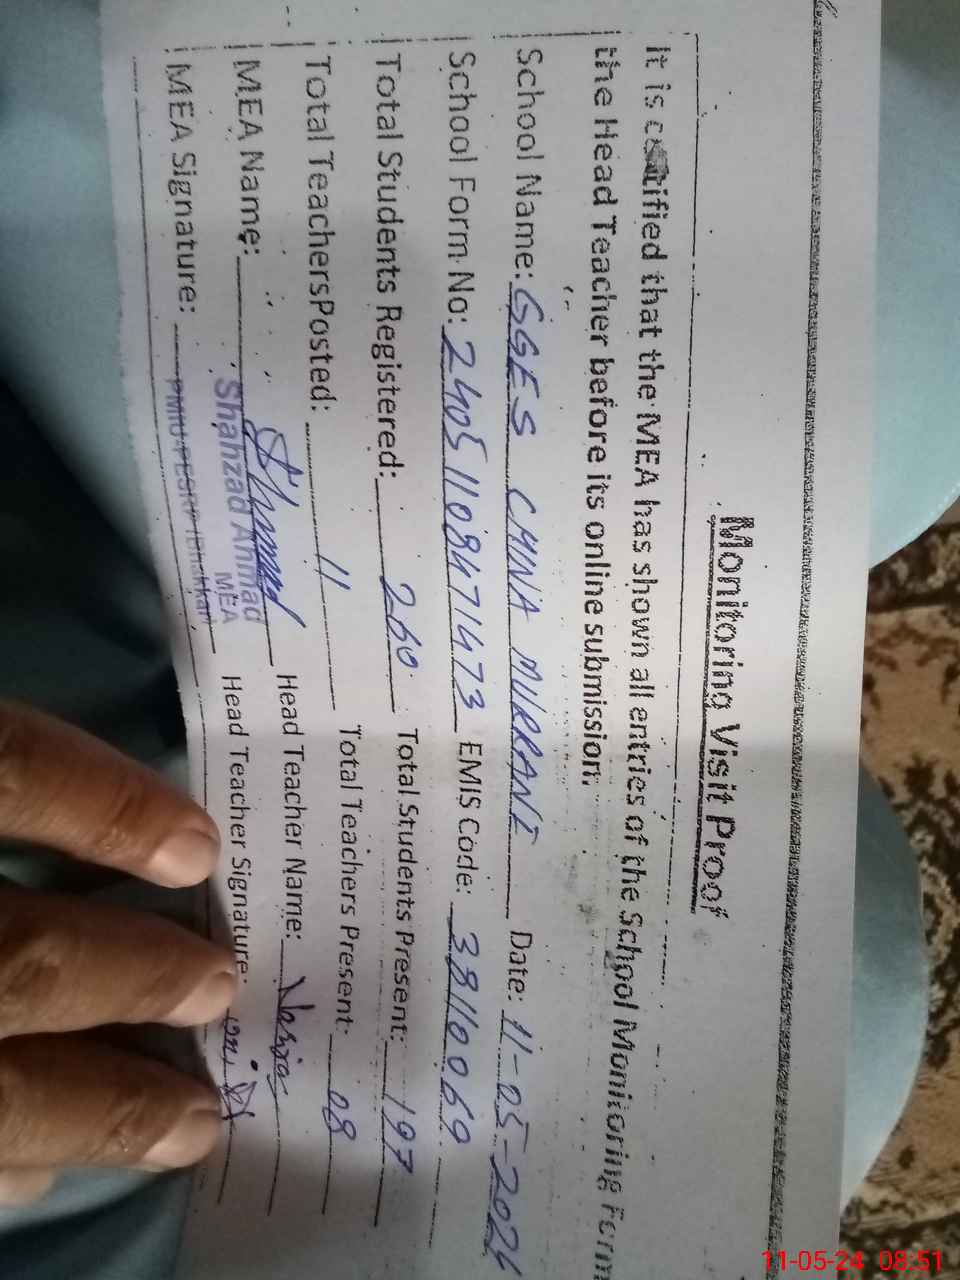 Monitoring Visit Proof
It is certified that the MEA has shown all entries of the School Monitoring Form
the Head Teacher before its online submission.
School Name: GGES CHINA MURRANI Date: 11-05-2024
School Form No: 24051108471473 EMIS Code: 38110069
Total Students Registered: 260 Total Students Present: 197
Total TeachersPosted: 11 Total Teachers Present: 08
MEA Name: Head Teacher Name:
Shahzad Ahmad
MEA
MEA Signature: PMIU-PESRP (Bhakkar) Head Teacher Signature:
11-05-24 08:51